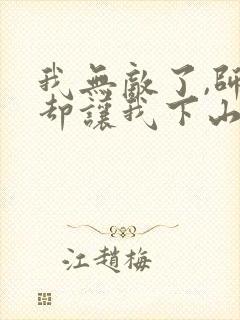 我無敵了,師
却讓我下山
江趙梅